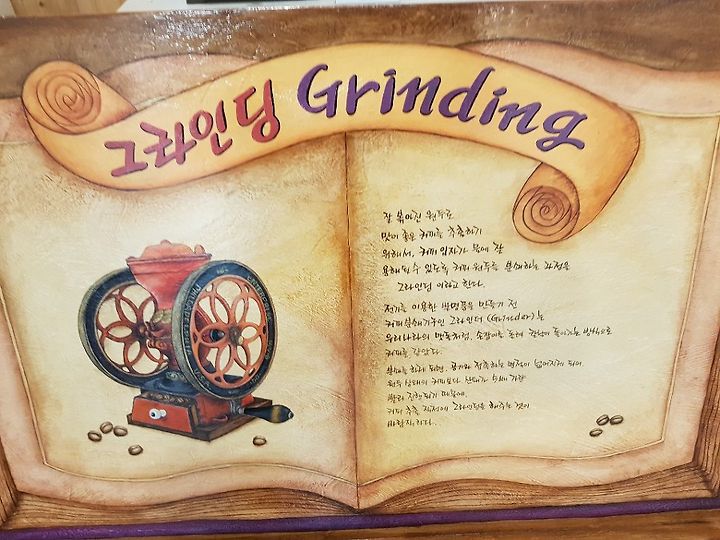 그라인딩 Grinding
잘 볶아진 원두로
맛이 좋은 커피를 추출하기
위해서, 커피 입자가 물에 잘
용해될 수 있도록 커피 원두를 분쇄하는 과정을
그라인딩 이라고 한다.
전기를 이용한 발명품을 만들기 전
커피분쇄기구인 그라인더(Grinder)는
우리나라의 맷돌처럼, 손잡이를 돌려 칼날이 돌아가는 방식으로
커피를 갈았다.
분쇄를 하게 되면, 공기와 접촉하는 면적이 넓어지게 되어
원두 상태의 커피보다 산패가 5배 가량
빨리 진행되기 때문에,
커피 추출 직전에 그라인딩을 해주는 것이
바람직하다..